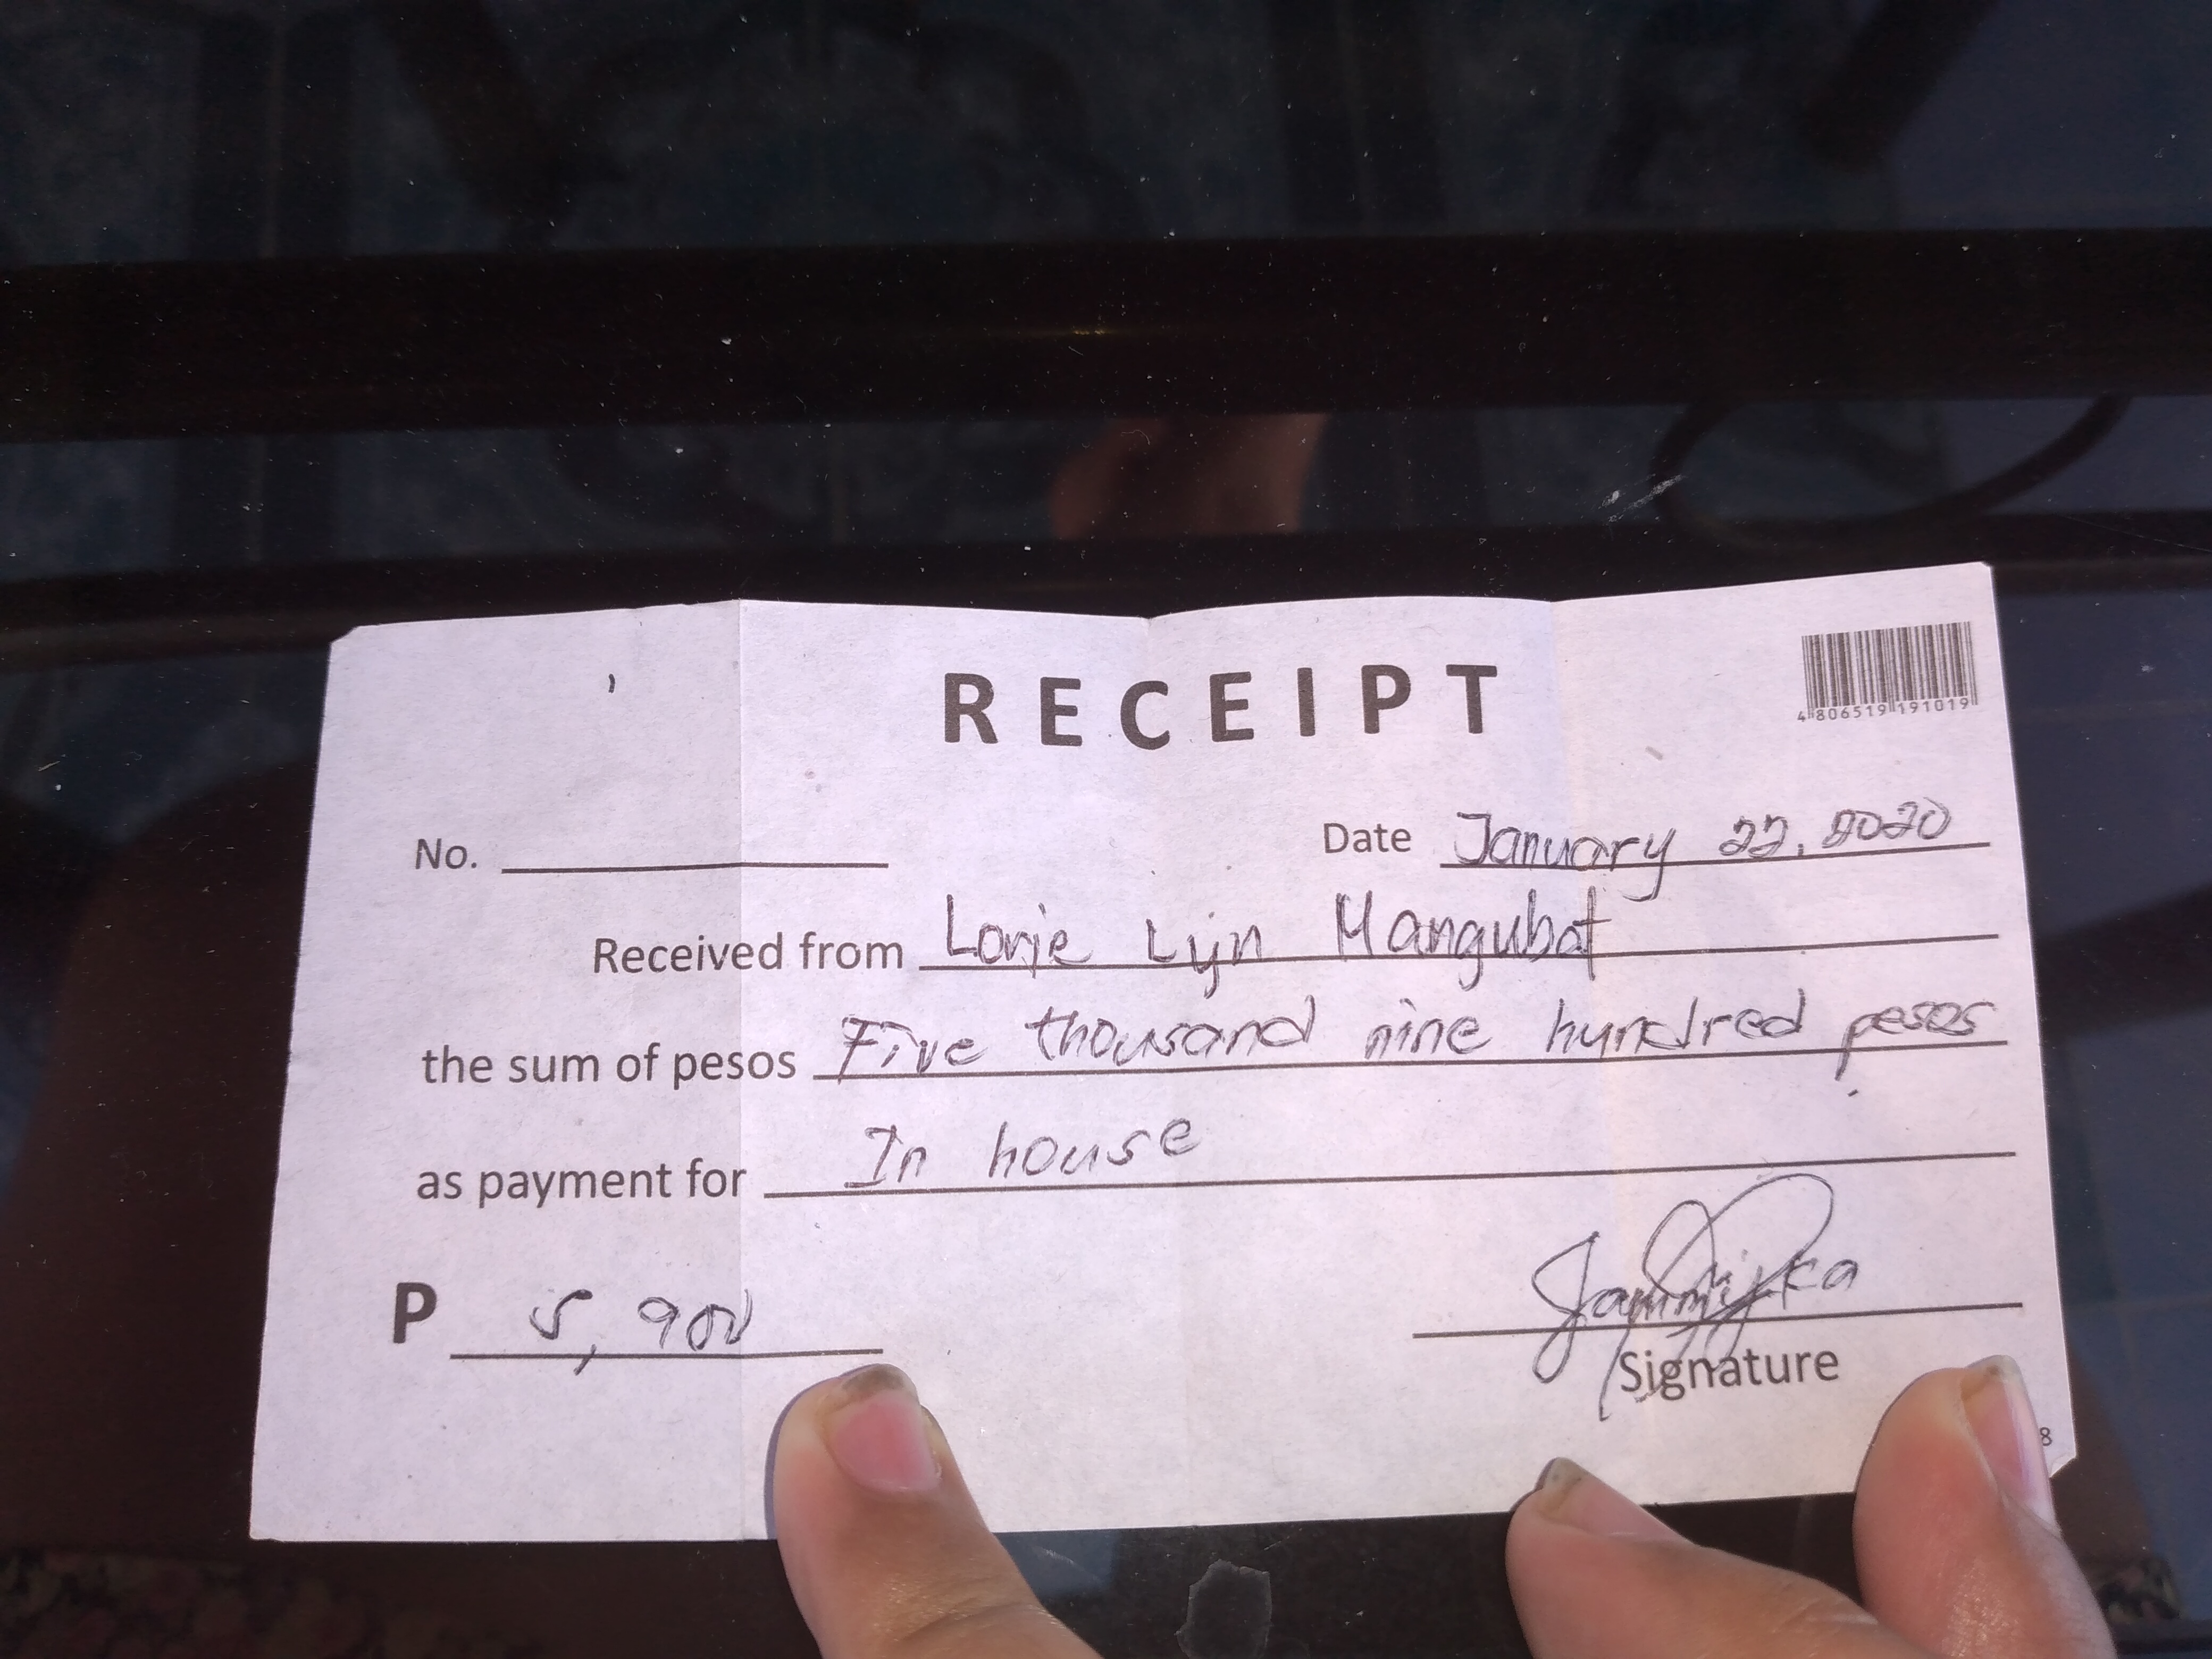 RECEIPT
4 806519 191019
No.
Date January 22, 2020
Received from Lorie Lyn Mangubat
the sum of pesos Five thousand nine hundred pesos
as payment for In house
P 5,900
Signature
8